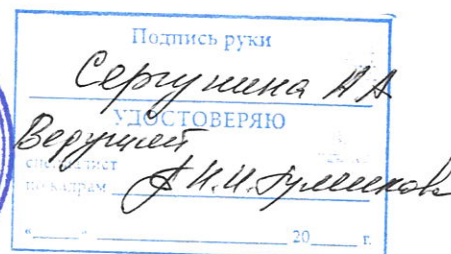 Подпись руки
Сергунина АА
УДОСТОВЕРЯЮ
Ведущий
специалист
по кадрам
« » 20 г.